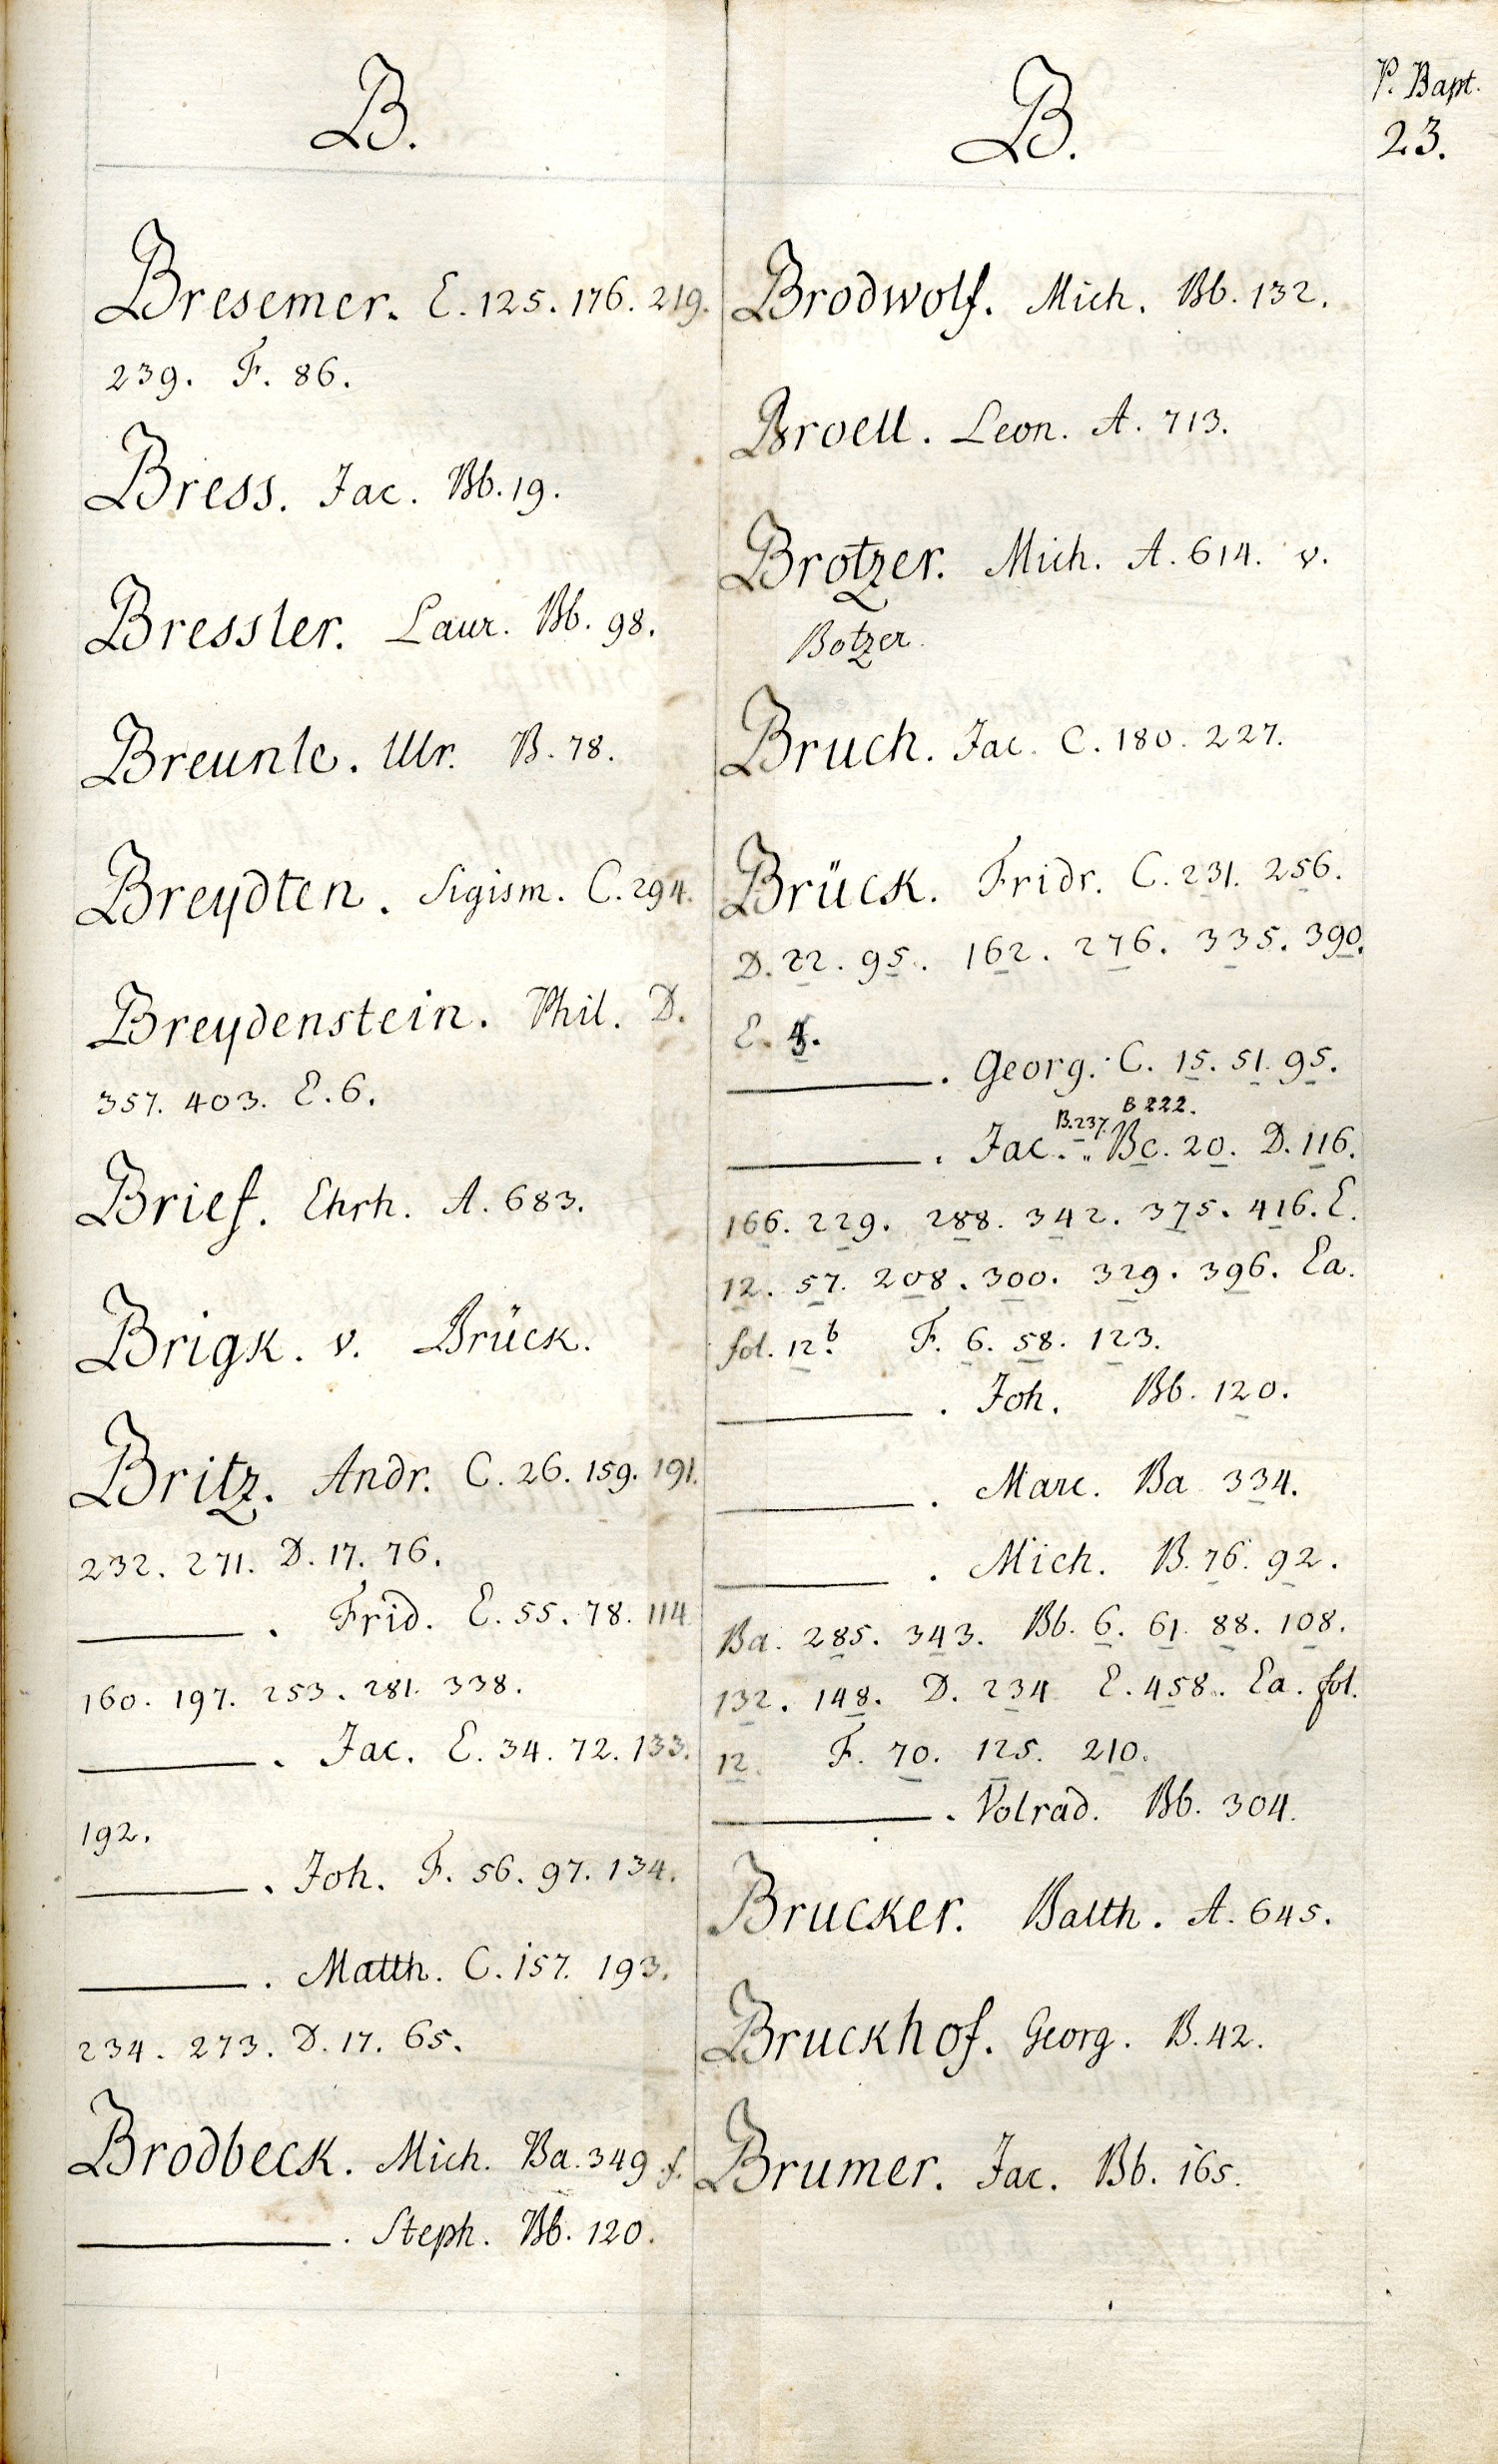 B.
Bresemer. E. 125. 176. 219.
239. F. 86.
Bress. Jac. Bb. 19.
Bressler. Laur. Bb. 98.
Breunle. Ulr. B. 78.
Breydten. Sigism. C. 294.
Breydenstein. Phil. D.
357. 403. E. 6.
Brief. Ehrh. A. 683.
Brigk. v. Brück.
Britz. Andr. C. 26. 159. 191.
232. 271. D. 17. 76.
———. Frid. E. 55. 78. 114
160. 197. 253. 281. 338.
———. Jac. E. 34. 72. 133.
192.
———. Joh. F. 56. 97. 134.
———. Matth. C. 157. 193.
234. 273. D. 17. 65.
Brodbeck. Mich. Ba. 349 f.
———. Steph. Bb. 120.
B.
Brodwolf. Mich. Bb. 132.
Broell. Leon. A. 713.
Brotzer. Mich. A. 614. v.
Botzer.
Bruch. Jac. C. 180. 227.
Brück. Fridr. C. 231. 256.
D. 22. 95. 162. 276. 335. 390.
E.
———. Georg. C. 15. 51. 95.
B. 237. B 222.
———. Jac. Bc. 20. D. 116.
166. 229. 288. 342. 375. 416. E.
12. 57. 208. 300. 329. 396. Ea.
fol. 12.b F. 6. 58. 123.
———. Joh. Bb. 120.
———. Marc. Ba 334.
———. Mich. B. 76. 92.
Ba. 285. 343. Bb. 6. 61. 88. 108.
132. 148. D. 234 E. 458. Ea. fol.
12. F. 70. 125. 210.
———. Volrad. Bb. 304.
Brucker. Balth. A. 645.
Bruckhof. Georg. B. 42.
Brumer. Jac. Bb. 165.
P. Bapt.
23.